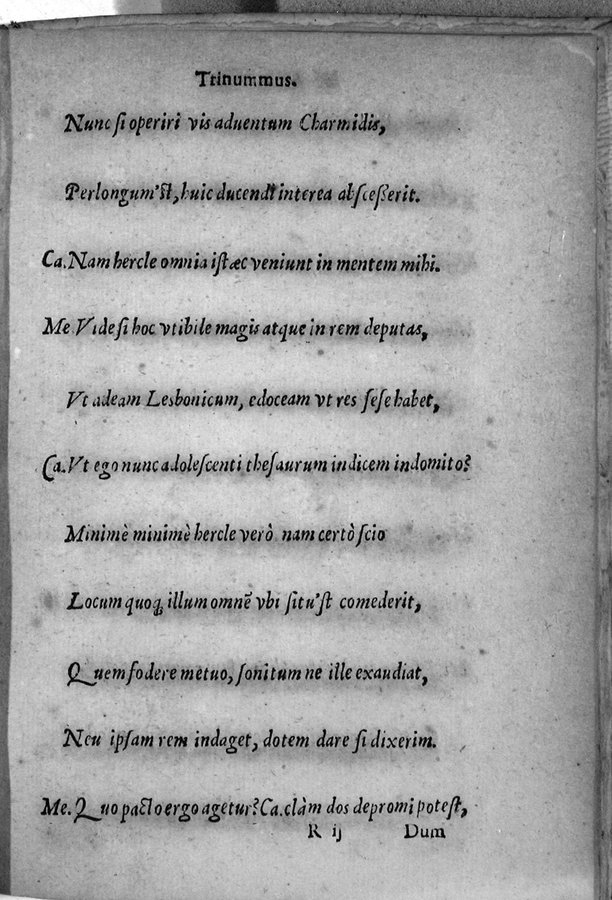 Trinummus.
Nunc ſi operiri vis aduentum Charmidis,
Perlongum'ſt, huic ducendi interea abſceſſerit.
Ca. Nam hercle omnia iſtæc veniunt in mentem mihi.
Me Vide ſi hoc vtibile magis atque in rem deputas,
Vt adeam Lesbonicum, edoceam vt res ſeſe habet,
Ca. Vt ego nunc adoleſcenti theſaurum indicem indomito?
Minimè minimè hercle verò nam certò ſcio
Locum quoq; illum omnē vbi ſitu'ſt comederit,
Quem fodere metuo, ſonitum ne ille exaudiat,
Neu ipſam rem indaget, dotem dare ſi dixerim.
Me. Quo pacto ergo agetur? Ca. clàm dos depromi poteſt,
R ij Dum